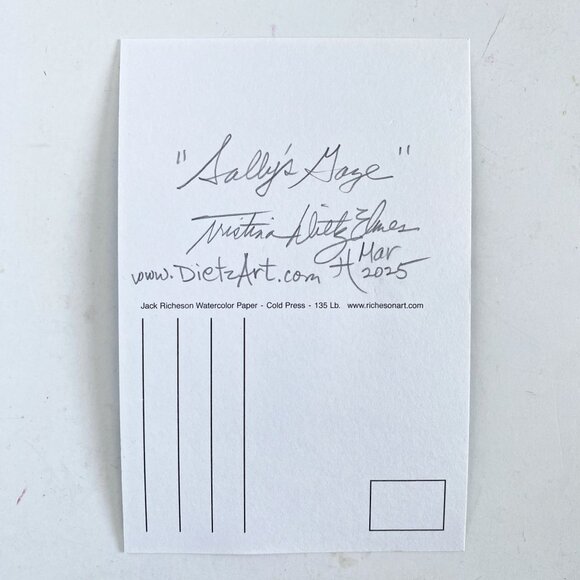 "Sally's Gaze"
Tristina Dietz Elmes
www.DietzArt.com Mar 2025
Jack Richeson Watercolor Paper - Cold Press - 135 Lb. www.richesonart.com